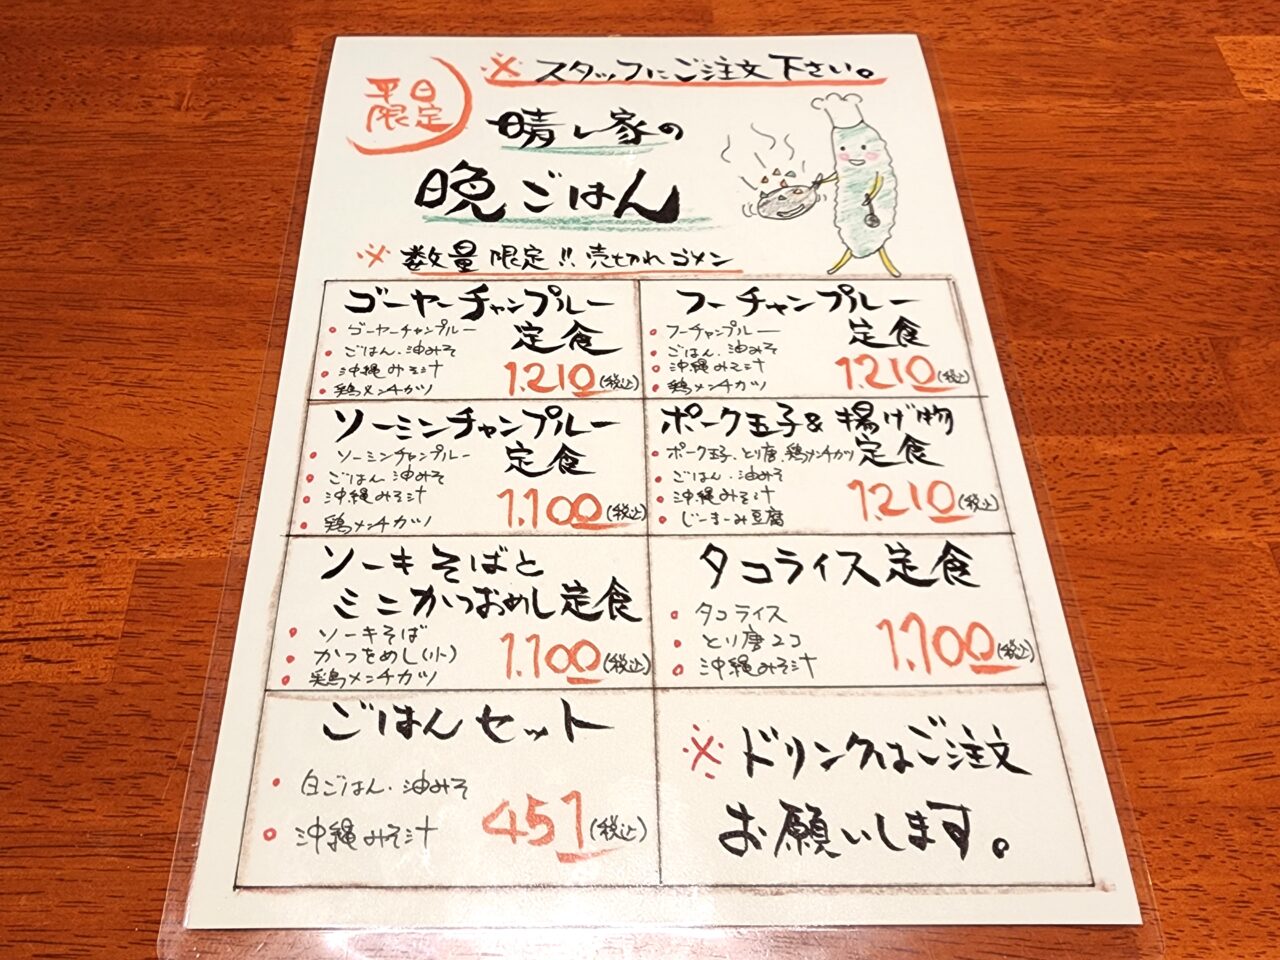 平日
限定
※スタッフにご注文下さい。
晴レ家の
晩ごはん
※数量限定!!売切れゴメン
ゴーヤーチャンプルー
定食
・ゴーヤーチャンプルー
・ごはん・油みそ
・沖縄みそ汁
・鶏メンチカツ
1.210(税込)
フーチャンプルー
定食
・フーチャンプルー
・ごはん・油みそ
・沖縄みそ汁
・鶏メンチカツ
1.210(税込)
ソーミンチャンプルー
定食
・ソーミンチャンプルー
・ごはん 油みそ
・沖縄みそ汁
・鶏メンチカツ
1.100(税込)
ポーク玉子&揚げ物
定食
・ポーク玉子、とり唐、鶏メンチカツ
・ごはん・油みそ
・沖縄みそ汁
・じーまーみ豆腐
1.210(税込)
ソーキそばと
ミニかつおめし定食
・ソーキそば
・かつをめし(小)
・鶏メンチカツ
1.100(税込)
タコライス定食
・タコライス
・とり唐2コ
・沖縄みそ汁
1.100(税込)
ごはんセット
・白ごはん・油みそ
・沖縄みそ汁
451(税込)
※ドリンクはご注文
お願いします。